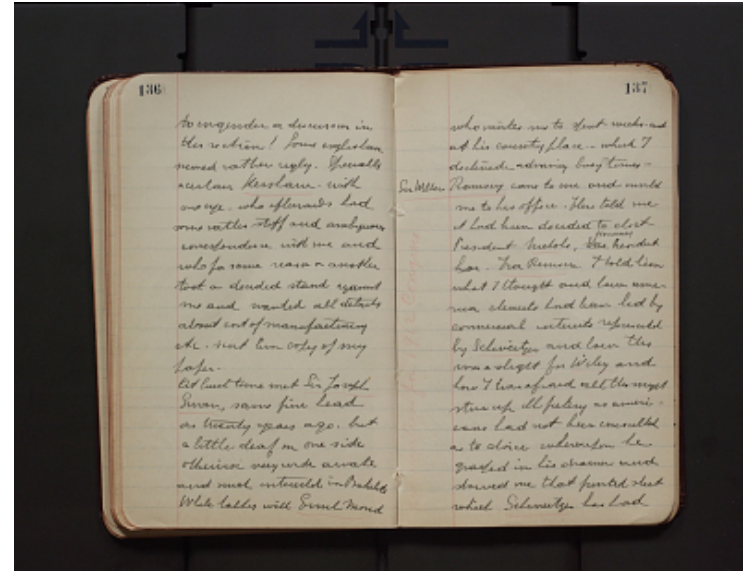 136
to engender a discussion in
this section! Some englishmen
seemed rather ugly. Specially
a certain Henshaw with
one eye. who afterwards had
some rather stiff and ambiguous
correspondence with me and
who for some reason or another
took a decided stand against
me and wanted all details
about cost of manufacturing
etc. sent him copy of my
paper.
At lunch time met Sir Joseph
Swan, same fine head
as twenty years ago. but
a little deaf on one side
otherwise very wide awake
and much interested in Bakelite
While talking with Emil Mond
137
who invites me to spend week-end
at his country place - which I
declined advising busy times -
Sir William
Ramsay came to me and invited
me to his office. Here told me
it had been decided to elect
President Nichols,
Ira Remsen I told him
what I thought and how
elements had been led by
commercial interests represented
by Schweitzer and how this
was a slight for Wiley and
how I was afraid all this might
stir up ill feeling as ameri-
cans had not been consulted
as to choice whereupon he
in his drawer and
showed me that printed sheet
which Schweitzer has had